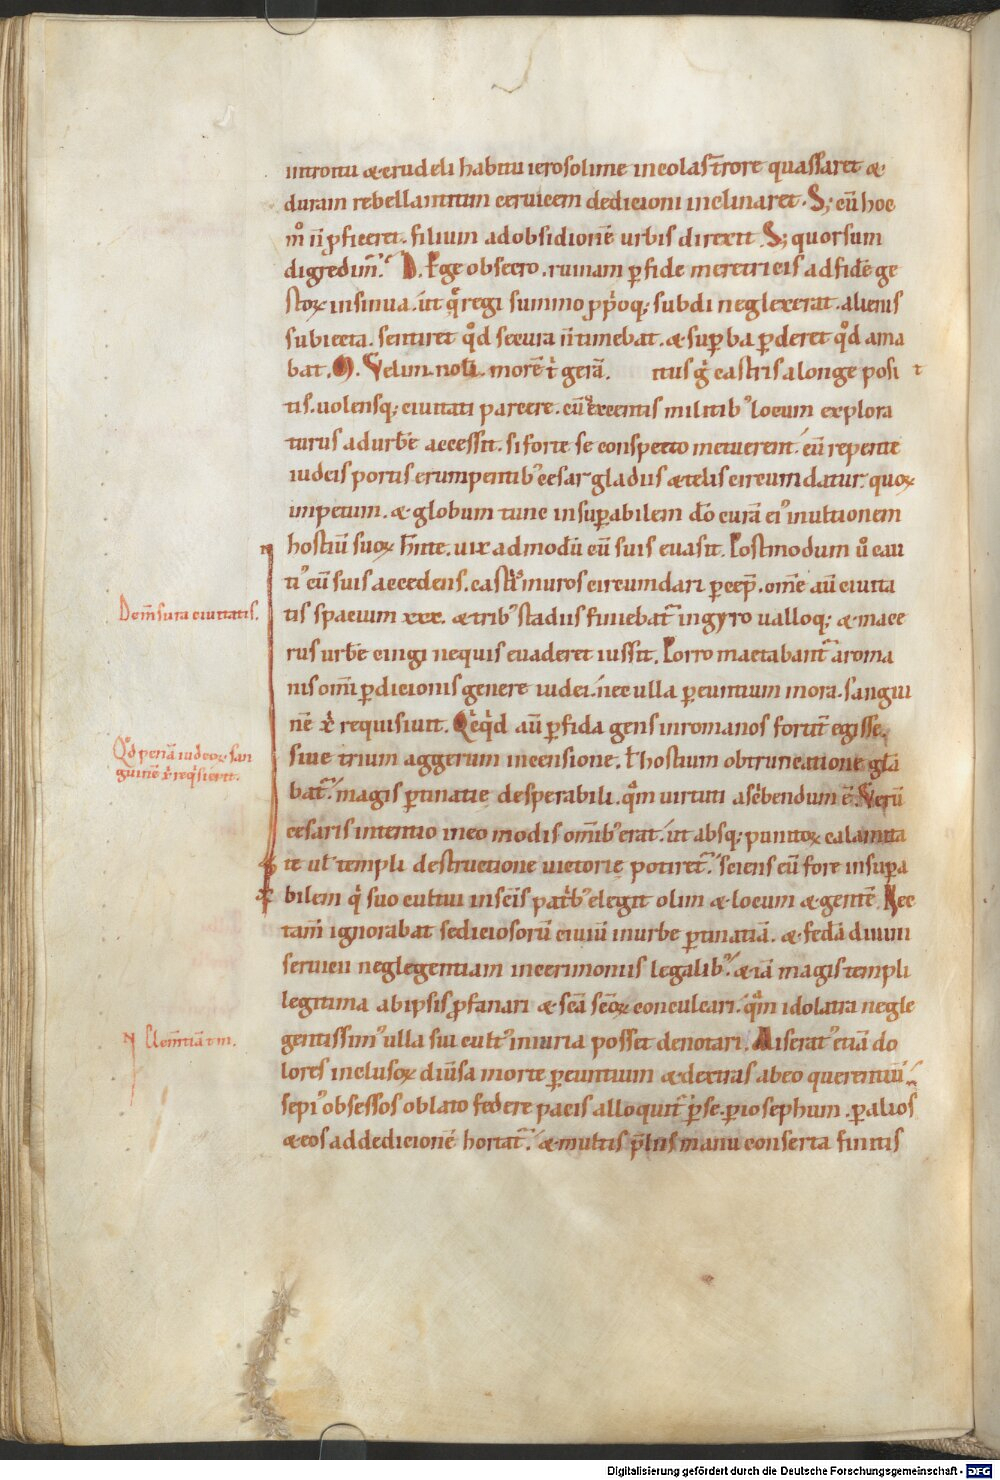 introitu & crudeli habitu ierosolime incolas t̄rore quassaret &
duram rebellantium ceruicem dedicioni inclinaret. S; cū hoc
m̊ n̄ ꝓficeret. filium ad obsidionē urbis direxit. S; quorsum
digredim̄. D. Ege obsecro. ruinam ꝑfide meretricis ad fidē ge
stoꝝ insinua. ut q̄ regi summo ꝓpoq; subdi neglexerat. alienis
subiecta. sentiret qd̊ secura n̄ timebat. & suꝑba ꝑderet qd̊ ama
bat. M. Velim nolī morē t̄ gerā. itus g̊ castris a longe posi t
tis. uolensq; ciuitati parcere. cū excentis militib' locum explora
turus ad urbē accessit. si forte se conspecto metuerent. cū repente
iudeis portis erumpentib' cesar gladiis & telis circumdatur. quoꝝ
impetum. & globum tunc insuꝑabilem do curā ei' in ultionem
hostiū suoꝝ hn̄te. uix admodū cū suis euasit. Postmodum ů cau
ti' cū suis accedens. castris muros circumdari p̄cep̄. omē aū ciuita
tis spacium xxx. & trib' stadiis finiebat in gyro ualloq; & mace
rus urbē cingi ne quis euaderet iussit. Porro mactabant a roma
nis omī ꝑdicionis genere iudei. nec ulla ꝑeuntium mora. sangui
nē xp̄i requisiuit. Qcqd aū ꝑfida gens in romanos fortit̄ egisse.
siue trium aggerum incensione. t̄ hostium obtruncatione glā
bat. magis ꝑtinatię desperabili. qm̄ uirtuti ascbendum ē. Verū
cesaris intentio in eo modis omīb' erat. ut absq; punitoꝝ calamita
te ul' templi destructione uictorię potiret. sciens eū fore insuꝑa
bilem q̄ suo cultui in scīs patb' elegit olim & locum & gentē. Nec
tam̄ ignorabat sediciosorū ciuiū in urbe ꝑtinatiā. & fedā diuini
seruicii neglegentiam in cerimoniis legalib'. & iā magis templi
legitima ab ipsis ꝓfanari & scā scōꝝ conculcari. qm̄ idolatra negle
gentissim' ulla sui cult' iniuria posset denotari. Miserat' etiā do
lores inclusoꝝ diuīsa morte ꝑeuntium & dextras ab eo querentiū
sepi' obsessos oblato federe pacis alloquit ꝑ se. ꝑ iosephum. ꝑ alios
& eos ad dedicionē hortat. & multis p̄liis manu conserta finitis
Demsura ciuitatis.
Qd penā iudeoꝝ san
guinē xp̄i reqsierit.
Clem̄tiā titi.